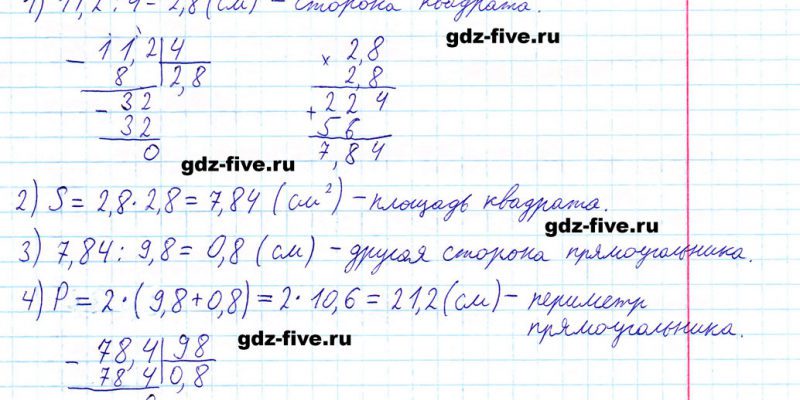 1) 11,2 : 4 = 2,8 (см) – сторона квадрата.
gdz-five.ru
– 11,2 | 4
8 | 2,8
– 32
32
0
× 2,8
2,8
+ 224
56
7,84
gdz-five.ru
2) S = 2,8 · 2,8 = 7,84 (см²) – площадь квадрата.
gdz-five.ru
3) 7,84 : 9,8 = 0,8 (см) – другая сторона прямоугольника.
4) P = 2 · (9,8 + 0,8) = 2 · 10,6 = 21,2 (см) – периметр
прямоугольника.
gdz-five.ru
– 78,4 | 98
78 4 | 0,8
0